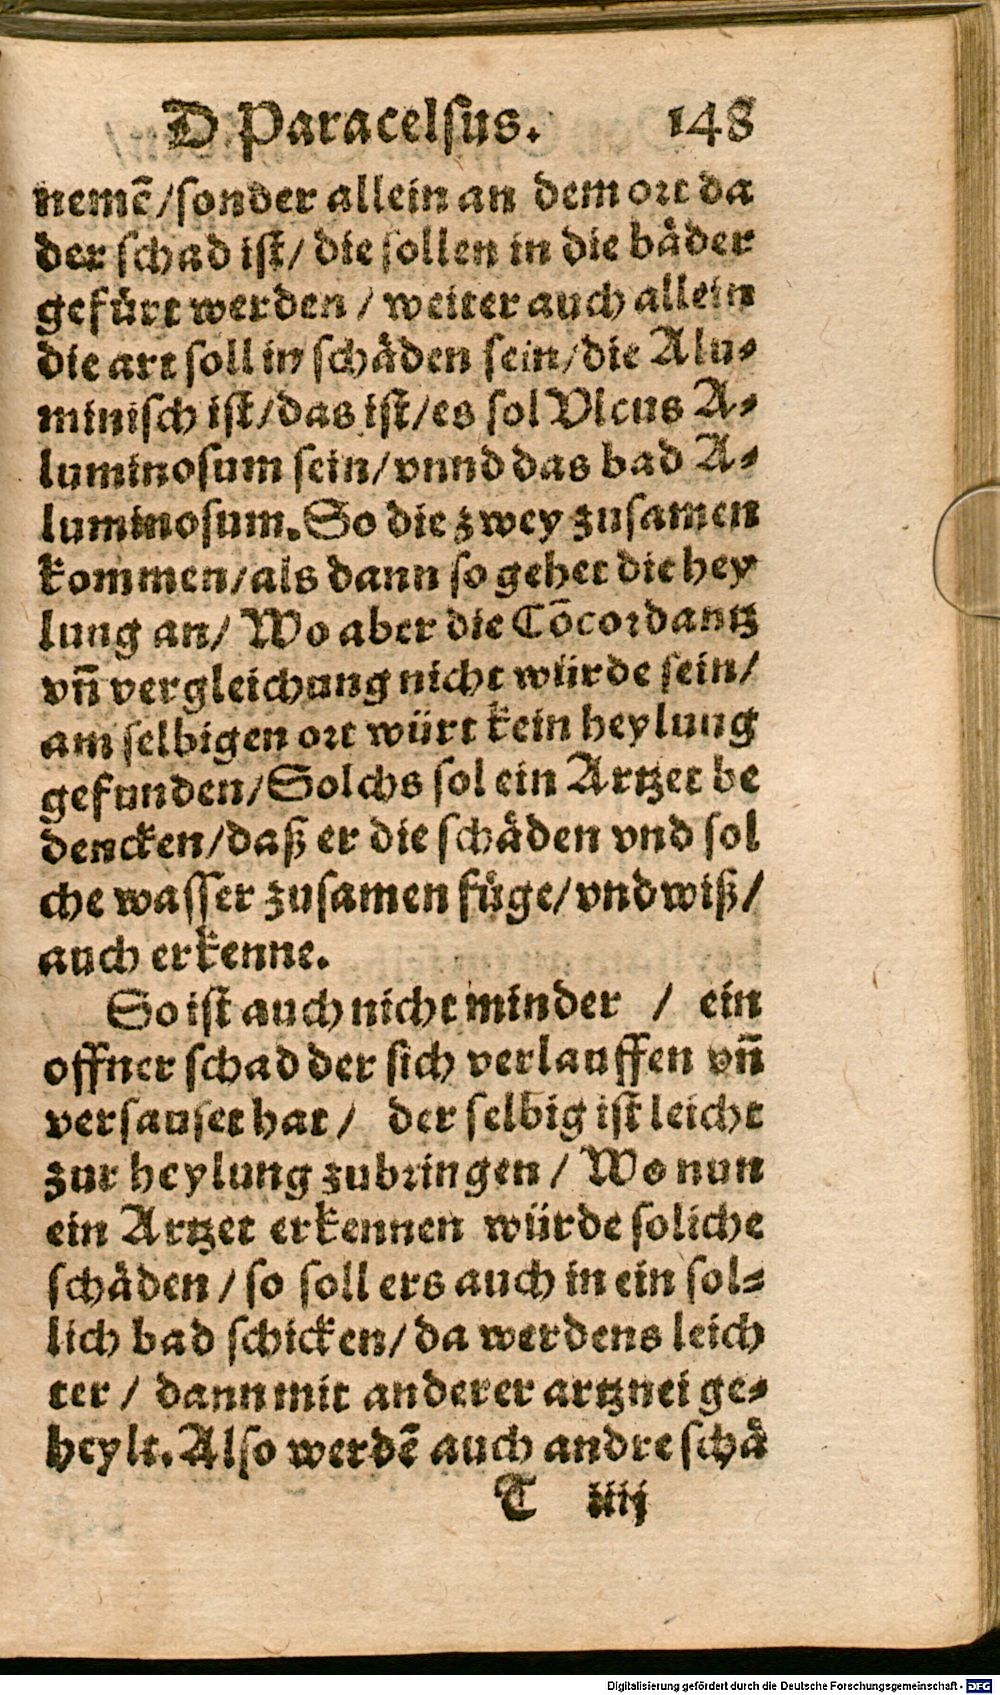 D Paracelsus. 148
nemē/sonder allein an dem ort da
der schad ist/ die sollen in die bäder
gefürt werden / weiter auch allein
die art soll in schäden sein/die Alu⸗
minisch ist/das ist/es sol Vlcus A⸗
luminosum sein/vnnd das bad A⸗
luminosum. So die zwey zusamen
kommen/als dann so gehet die hey
lung an/ Wo aber die Cōcordantz
vn̄ vergleichung nicht würde sein/
am selbigen ort würt kein heylung
gefunden/Solchs sol ein Artzet be
dencken/daß er die schäden vnd sol
che wasser zusamen füge/vnd wiß/
auch erkenne.
So ist auch nicht minder / ein
offner schad der sich verlauffen vn̄
versauset hat / der selbig ist leicht
zur heylung zubringen / Wo nun
ein Artzet erkennen würde soliche
schäden / so soll ers auch in ein sol⸗
lich bad schicken/ da werdens leich
ter / dann mit anderer artznei ge⸗
heylt. Also werdē auch andre schä
T iiij
Digitalisierung gefördert durch die Deutsche Forschungsgemeinschaft - DFG